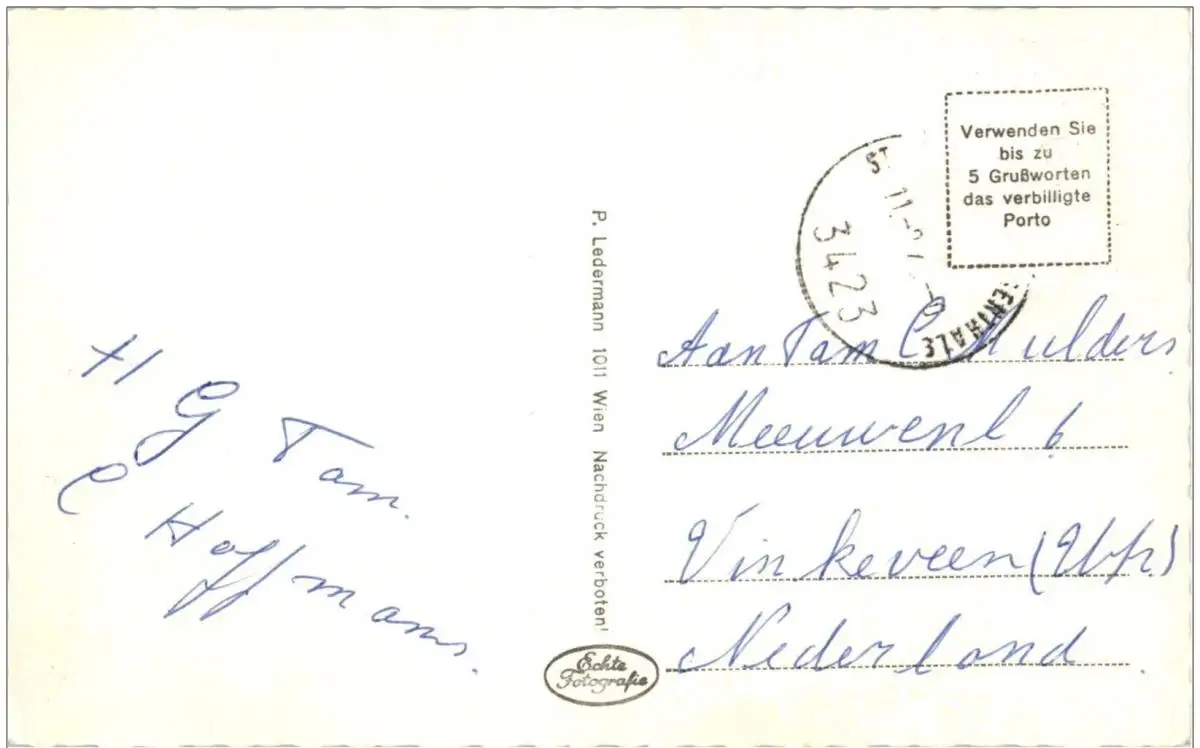 H G Tam.
C Hoffmans.
P. Ledermann 1011 Wien Nachdruck verboten!
Echte
Fotografie
Verwenden Sie
bis zu
5 Grußworten
das verbilligte
Porto
3423
Aan Fam C Mulders
Meeuwenl 6
Vinkeveen (Utr.)
Nederland